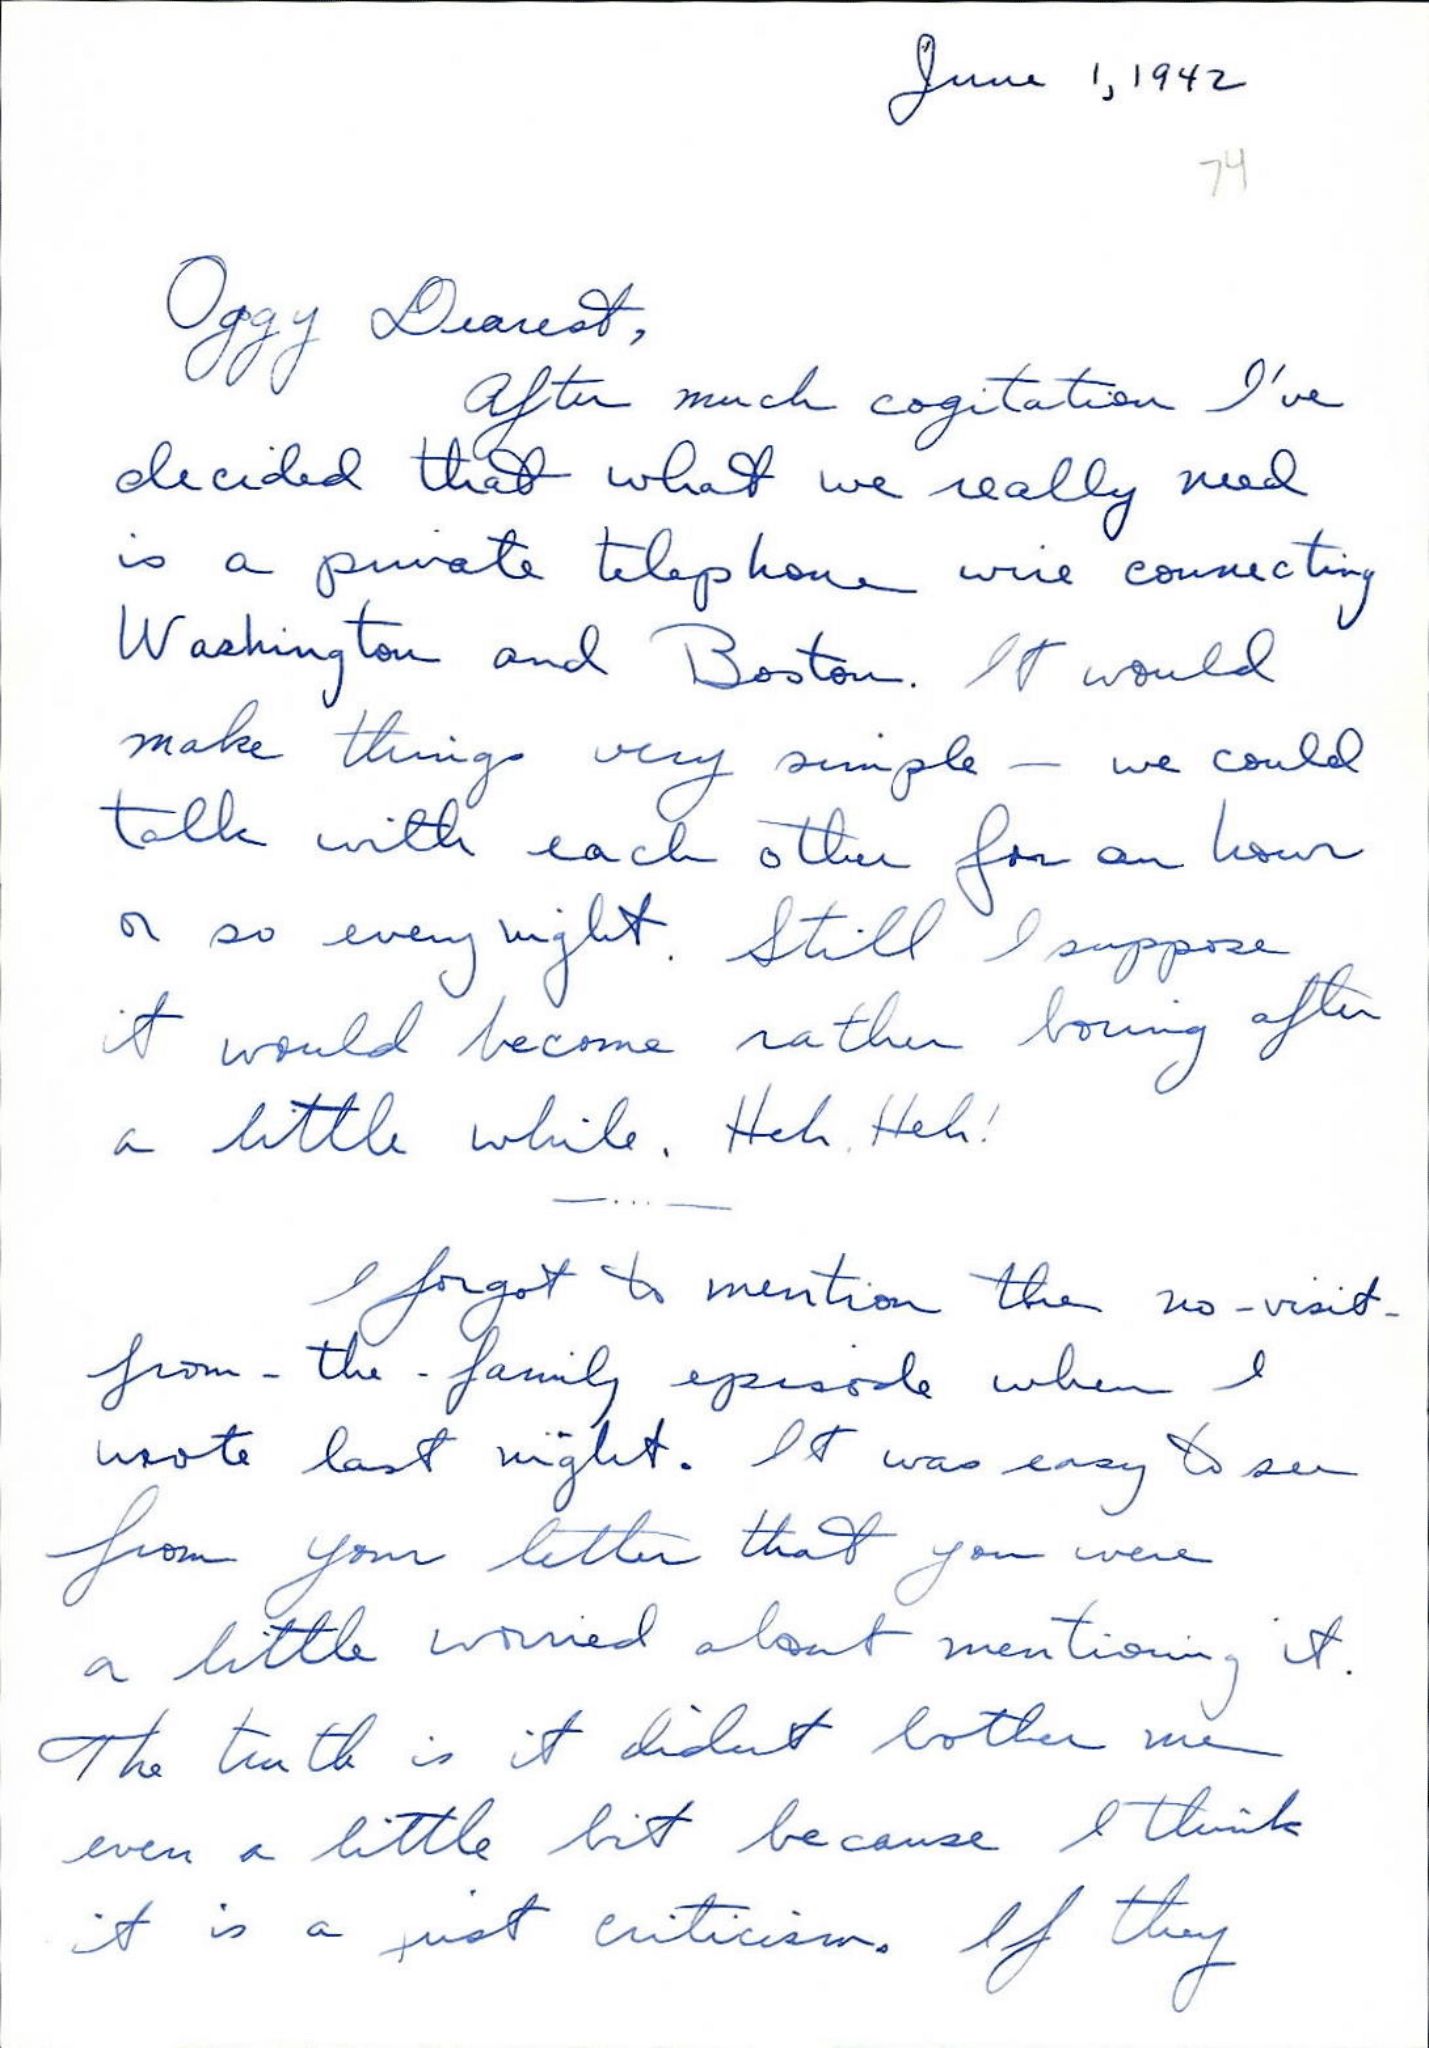 June 1, 1942
74
Oggy Dearest,
After much cogitation I've
decided that what we really need
is a private telephone wire connecting
Washington and Boston. It would
make things very simple — we could
talk with each other for an hour
or so every night. Still I suppose
it would become rather boring after
a little while. Heh, Heh!
—...—
I forgot to mention the no-visit-
from-the-family episode when I
wrote last night. It was easy to see
from your letter that you were
a little worried about mentioning it.
The truth is it didn't bother me
even a little bit because I think
it is a just criticism. If they